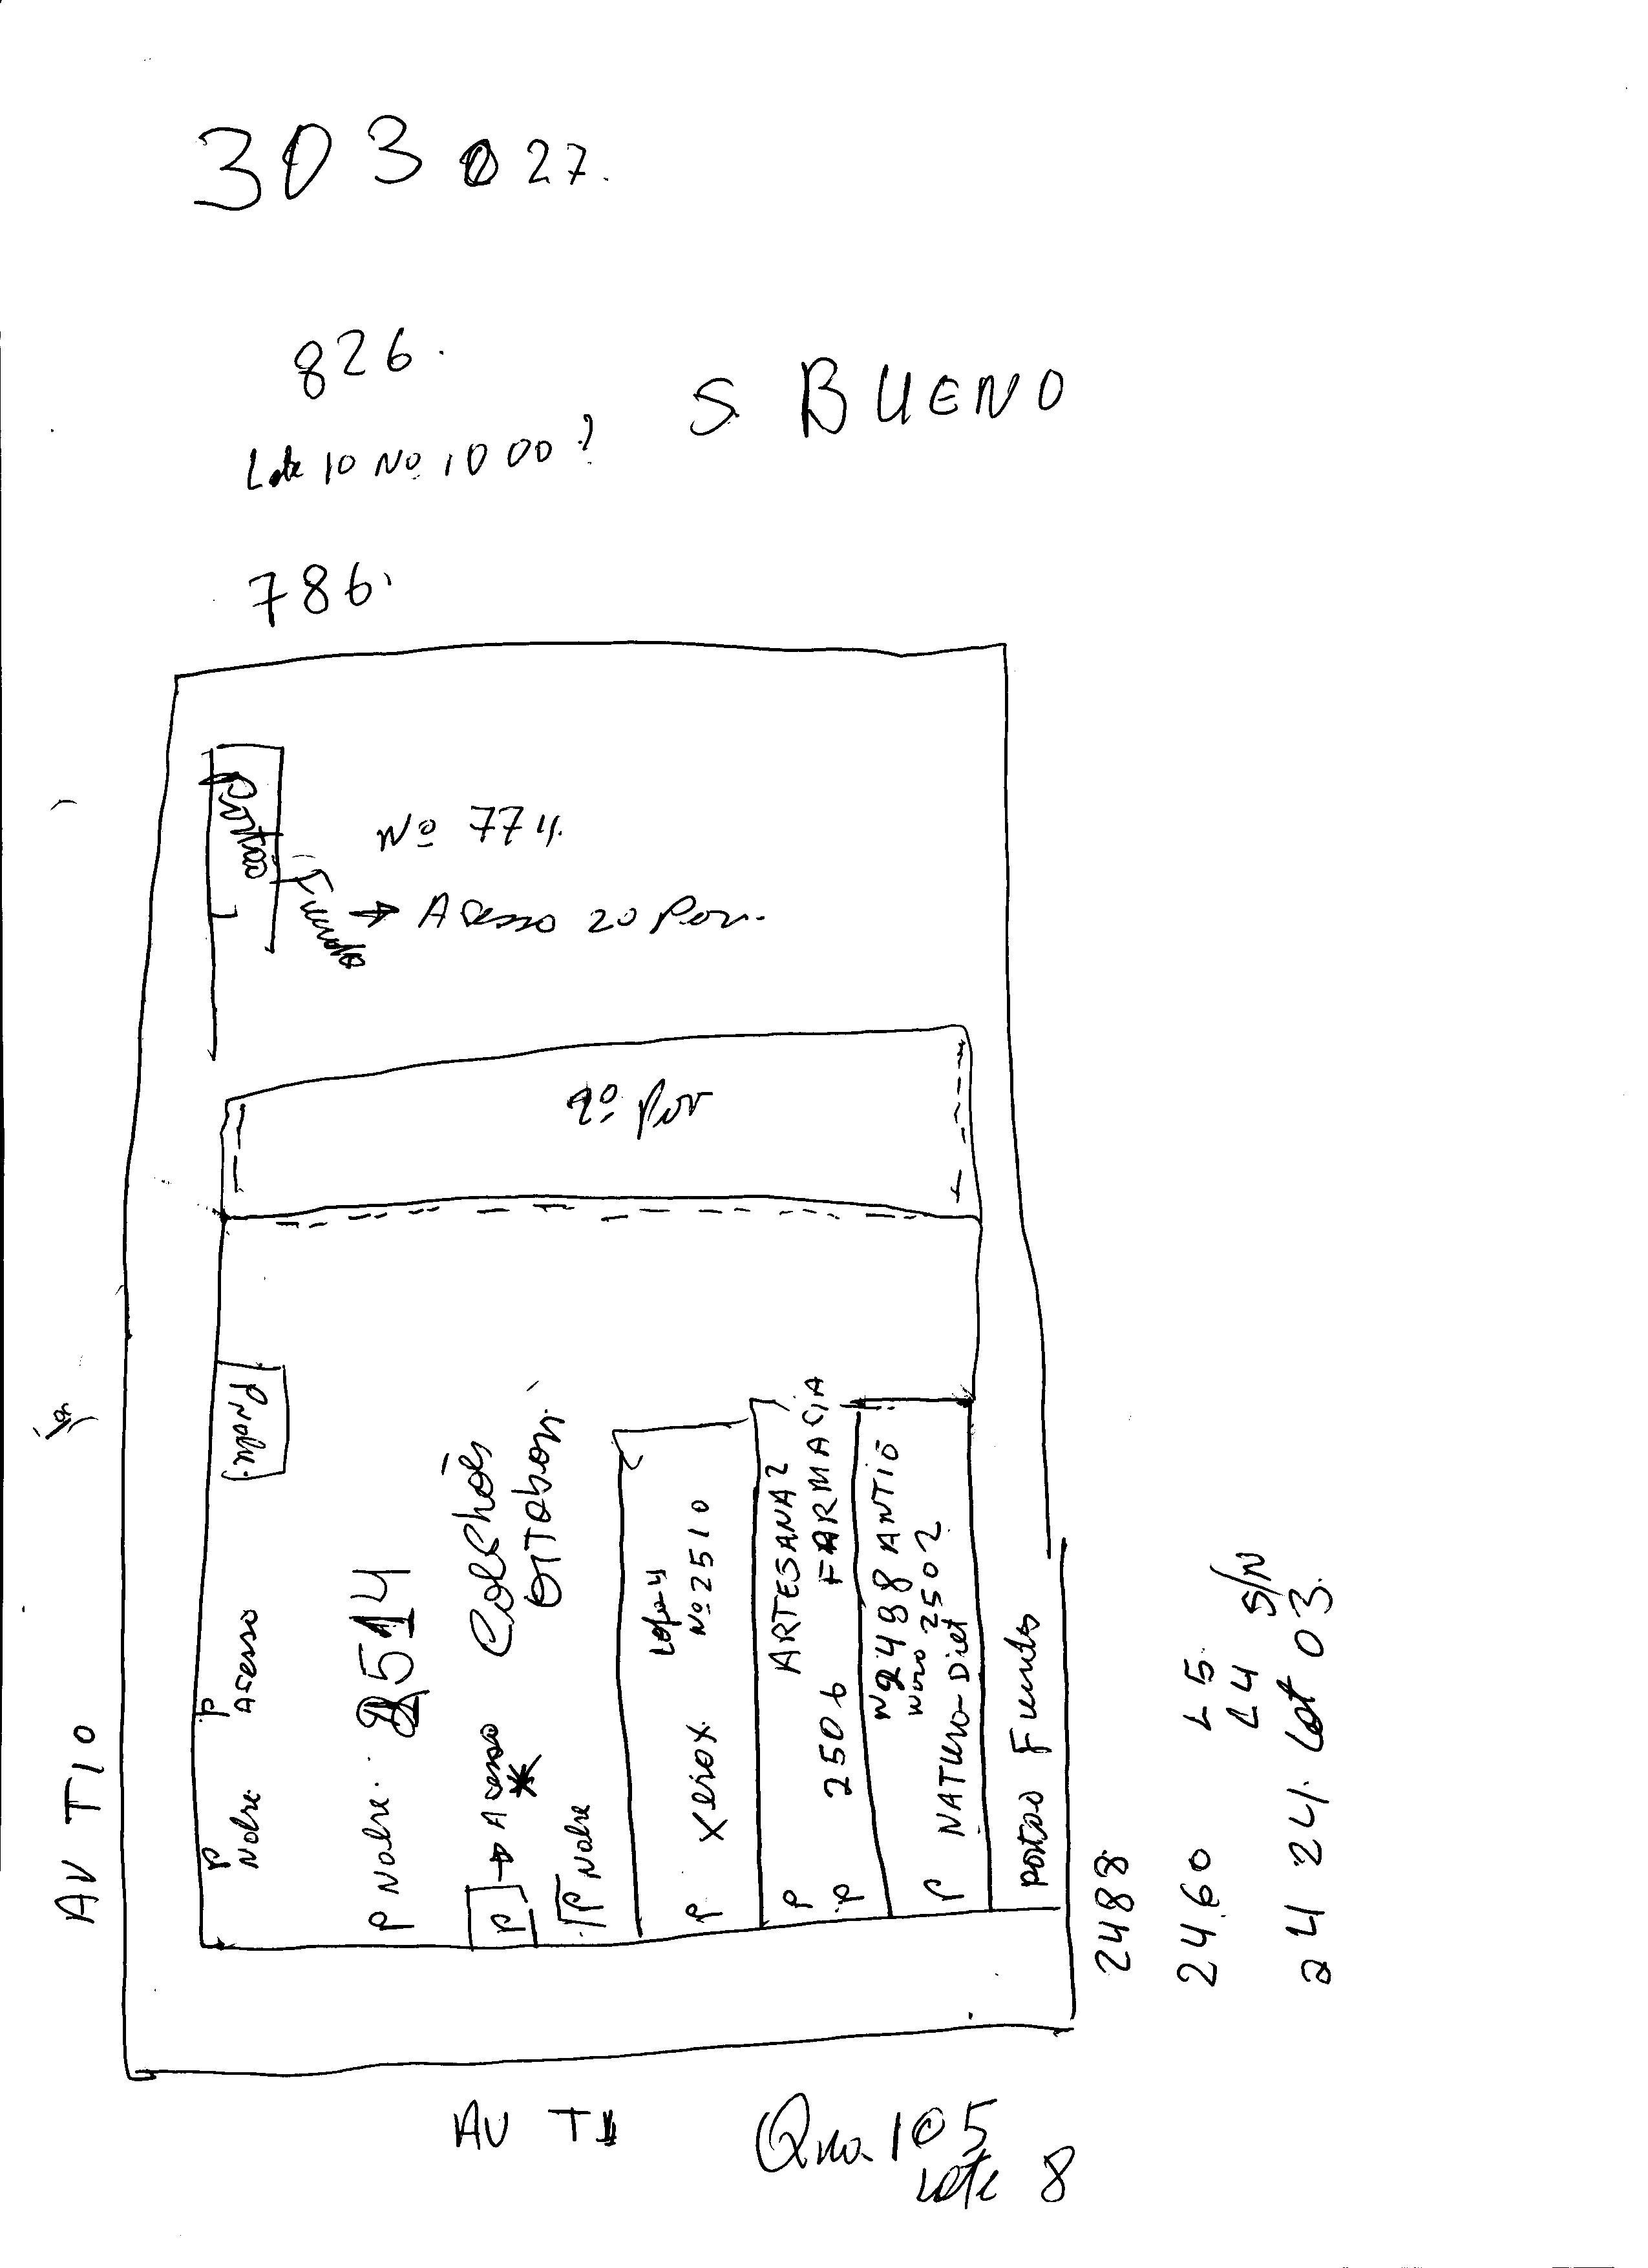 303027.
826.
S. BUENO
Lote 10 No. 1000?
786.
Portão
Fundo
Nº 774.
→ Acesso 20 Pav.
2º Pav
P Nobre
P
Acesso
P
Nobre
AV T10
P Nobre. 2514
Colchões
ORTOBOM.
P → Acesso
P Nobre
Loja 4
Nº 2510
P Xerox.
ARTESANAL
FARMACIA
P
P 2506
Nº 2488 ANTIO
NOVO 2502
P NATURO-Diet
Portão Fundo
2488
2460 L5.
L4 S/N
2424. Lot 03.
AV T1
Qua. 105
Lote 8